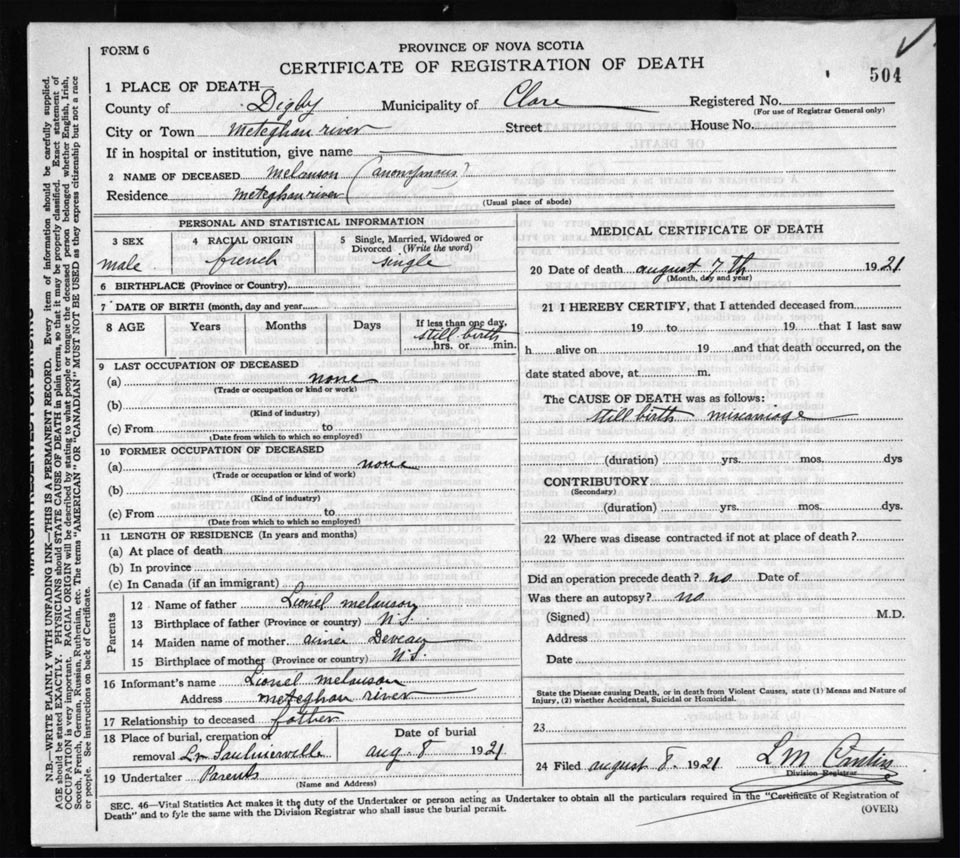 FORM 6
PROVINCE OF NOVA SCOTIA
CERTIFICATE OF REGISTRATION OF DEATH
504
1 PLACE OF DEATH—
County of Digby Municipality of Clare Registered No.
(For use of Registrar General only)
City or Town Meteghan river Street House No.
If in hospital or institution, give name
2 NAME OF DECEASED Melanson (anonymous)
Residence Meteghan river
(Usual place of abode)
PERSONAL AND STATISTICAL INFORMATION
3 SEX 4 RACIAL ORIGIN 5 Single, Married, Widowed or
Divorced (Write the word)
male french single
6 BIRTHPLACE (Province or Country)
7 DATE OF BIRTH (month, day and year)
8 AGE Years Months Days If less than one day,
still birth
hrs. or min.
9 LAST OCCUPATION OF DECEASED
(a) none
(Trade or occupation or kind or work)
(b)
(Kind of industry)
(c) From to
(Date from which to which so employed)
10 FORMER OCCUPATION OF DECEASED
(a) none
(Trade or occupation or kind of work)
(b)
(Kind of industry)
(c) From to
(Date from which to which so employed)
11 LENGTH OF RESIDENCE (In years and months)
(a) At place of death
(b) In province
(c) In Canada (if an immigrant)
Parents
12 Name of father Lionel melanson
13 Birthplace of father (Province or country) N.S.
14 Maiden name of mother Deveau
15 Birthplace of mother (Province or country) N.S.
16 Informant's name Lionel melanson
Address meteghan river
17 Relationship to deceased father
18 Place of burial, cremation or Date of burial
removal Lr Saulnierville aug 8 1921
19 Undertaker Parents
(Name and Address)
MEDICAL CERTIFICATE OF DEATH
20 Date of death august 7th 1921
(Month, day and year)
21 I HEREBY CERTIFY, that I attended deceased from
19 to 19 that I last saw
h alive on 19 and that death occurred, on the
date stated above, at m.
The CAUSE OF DEATH was as follows:
still birth miscarriage
(duration) yrs. mos. dys
CONTRIBUTORY
(Secondary)
(duration) yrs. mos. dys.
22 Where was disease contracted if not at place of death?
Did an operation precede death? no Date of
Was there an autopsy? no
(Signed) M.D.
Address
Date
State the Disease causing Death, or in death from Violent Causes, state (1) Means and Nature of
Injury, (2) whether Accidental, Suicidal or Homicidal.
23
24 Filed august 8. 1921 L M Cantin
Division Registrar
SEC. 46—Vital Statistics Act makes it the duty of the Undertaker or person acting as Undertaker to obtain all the particulars required in the "Certificate of Registration of
Death" and to fyle the same with the Division Registrar who shall issue the burial permit.
(OVER)
N.B.—WRITE PLAINLY WITH UNFADING INK—THIS IS A PERMANENT RECORD. Every item of information should be carefully supplied.
AGE should be stated EXACTLY. PHYSICIANS should STATE CAUSE OF DEATH in plain terms, so that it may be properly classified. Exact statement of
OCCUPATION is very important. RACIAL ORIGIN will be described by stating to what people or tongue the deceased person belonged whether English, Irish,
Scotch, French, German, Russian, Ruthenian, etc. The terms "AMERICAN" OR "CANADIAN" MUST NOT BE USED as they express citizenship but not a race
or people. See instructions on back of Certificate.